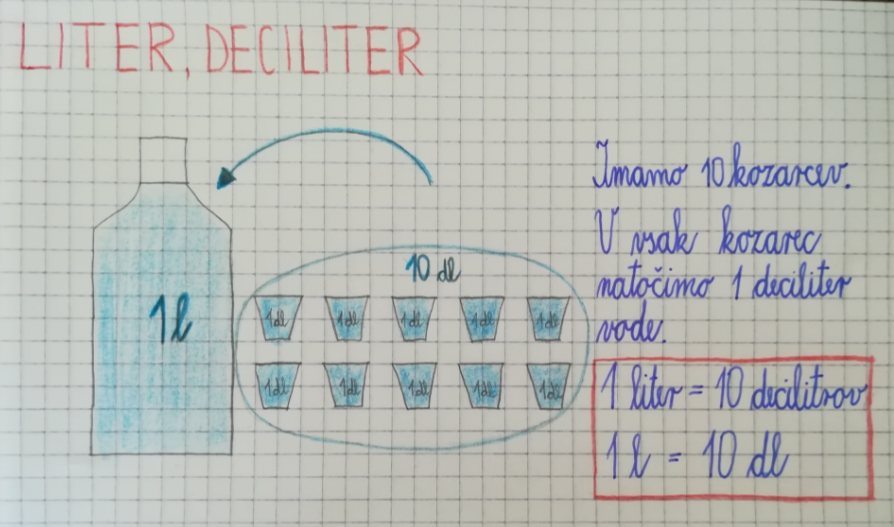 LITER, DECILITER
1l
10 dl
1dl 1dl 1dl 1dl 1dl
1dl 1dl 1dl 1dl 1dl
Imamo 10 kozarcev.
V vsak kozarec
natočimo 1 deciliter
vode.
1 liter = 10 decilitrov
1 l = 10 dl